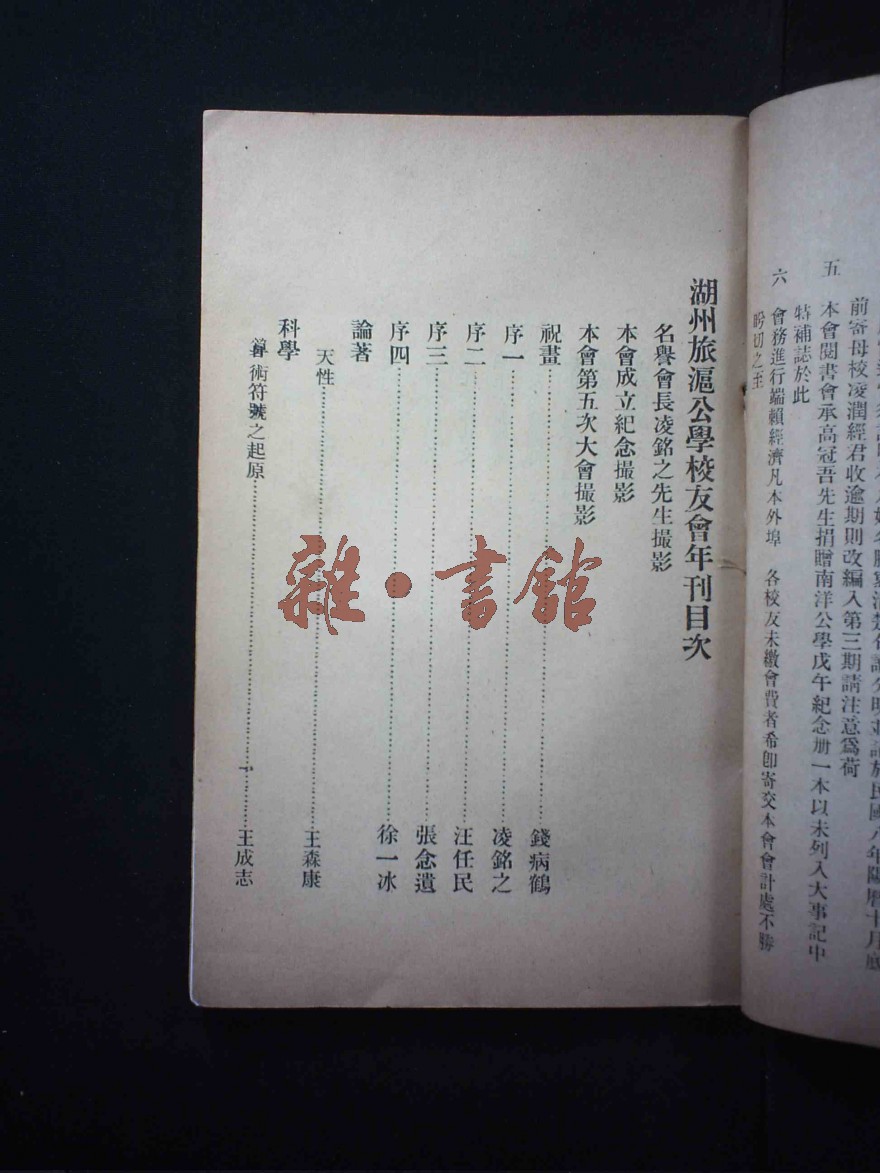 前寄母校凌潤經君收逾期則改編入第三期請注意爲荷
五 本會閱書會承高冠吾先生捐贈南洋公學戊午紀念册一本以未列入大事記中
特補誌於此
六 會務進行端賴經濟凡本外埠 各校友未繳會費者希卽寄交本會會計處不勝
盼切之至
湖州旅滬公學校友會年刊目次
名譽會長凌銘之先生撮影
本會成立紀念撮影
本會第五次大會撮影
祝畫 錢病鶴
序一 凌銘之
序二 汪任民
序三 張念遺
序四 徐一冰
論著
天性 王森康
科學
術符號之起原 王成志
雜·書館